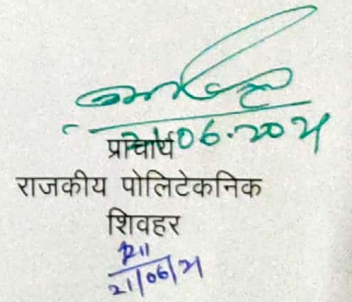 21.06.2021
प्राचार्य
राजकीय पोलिटेकनिक
शिवहर
21/06/21